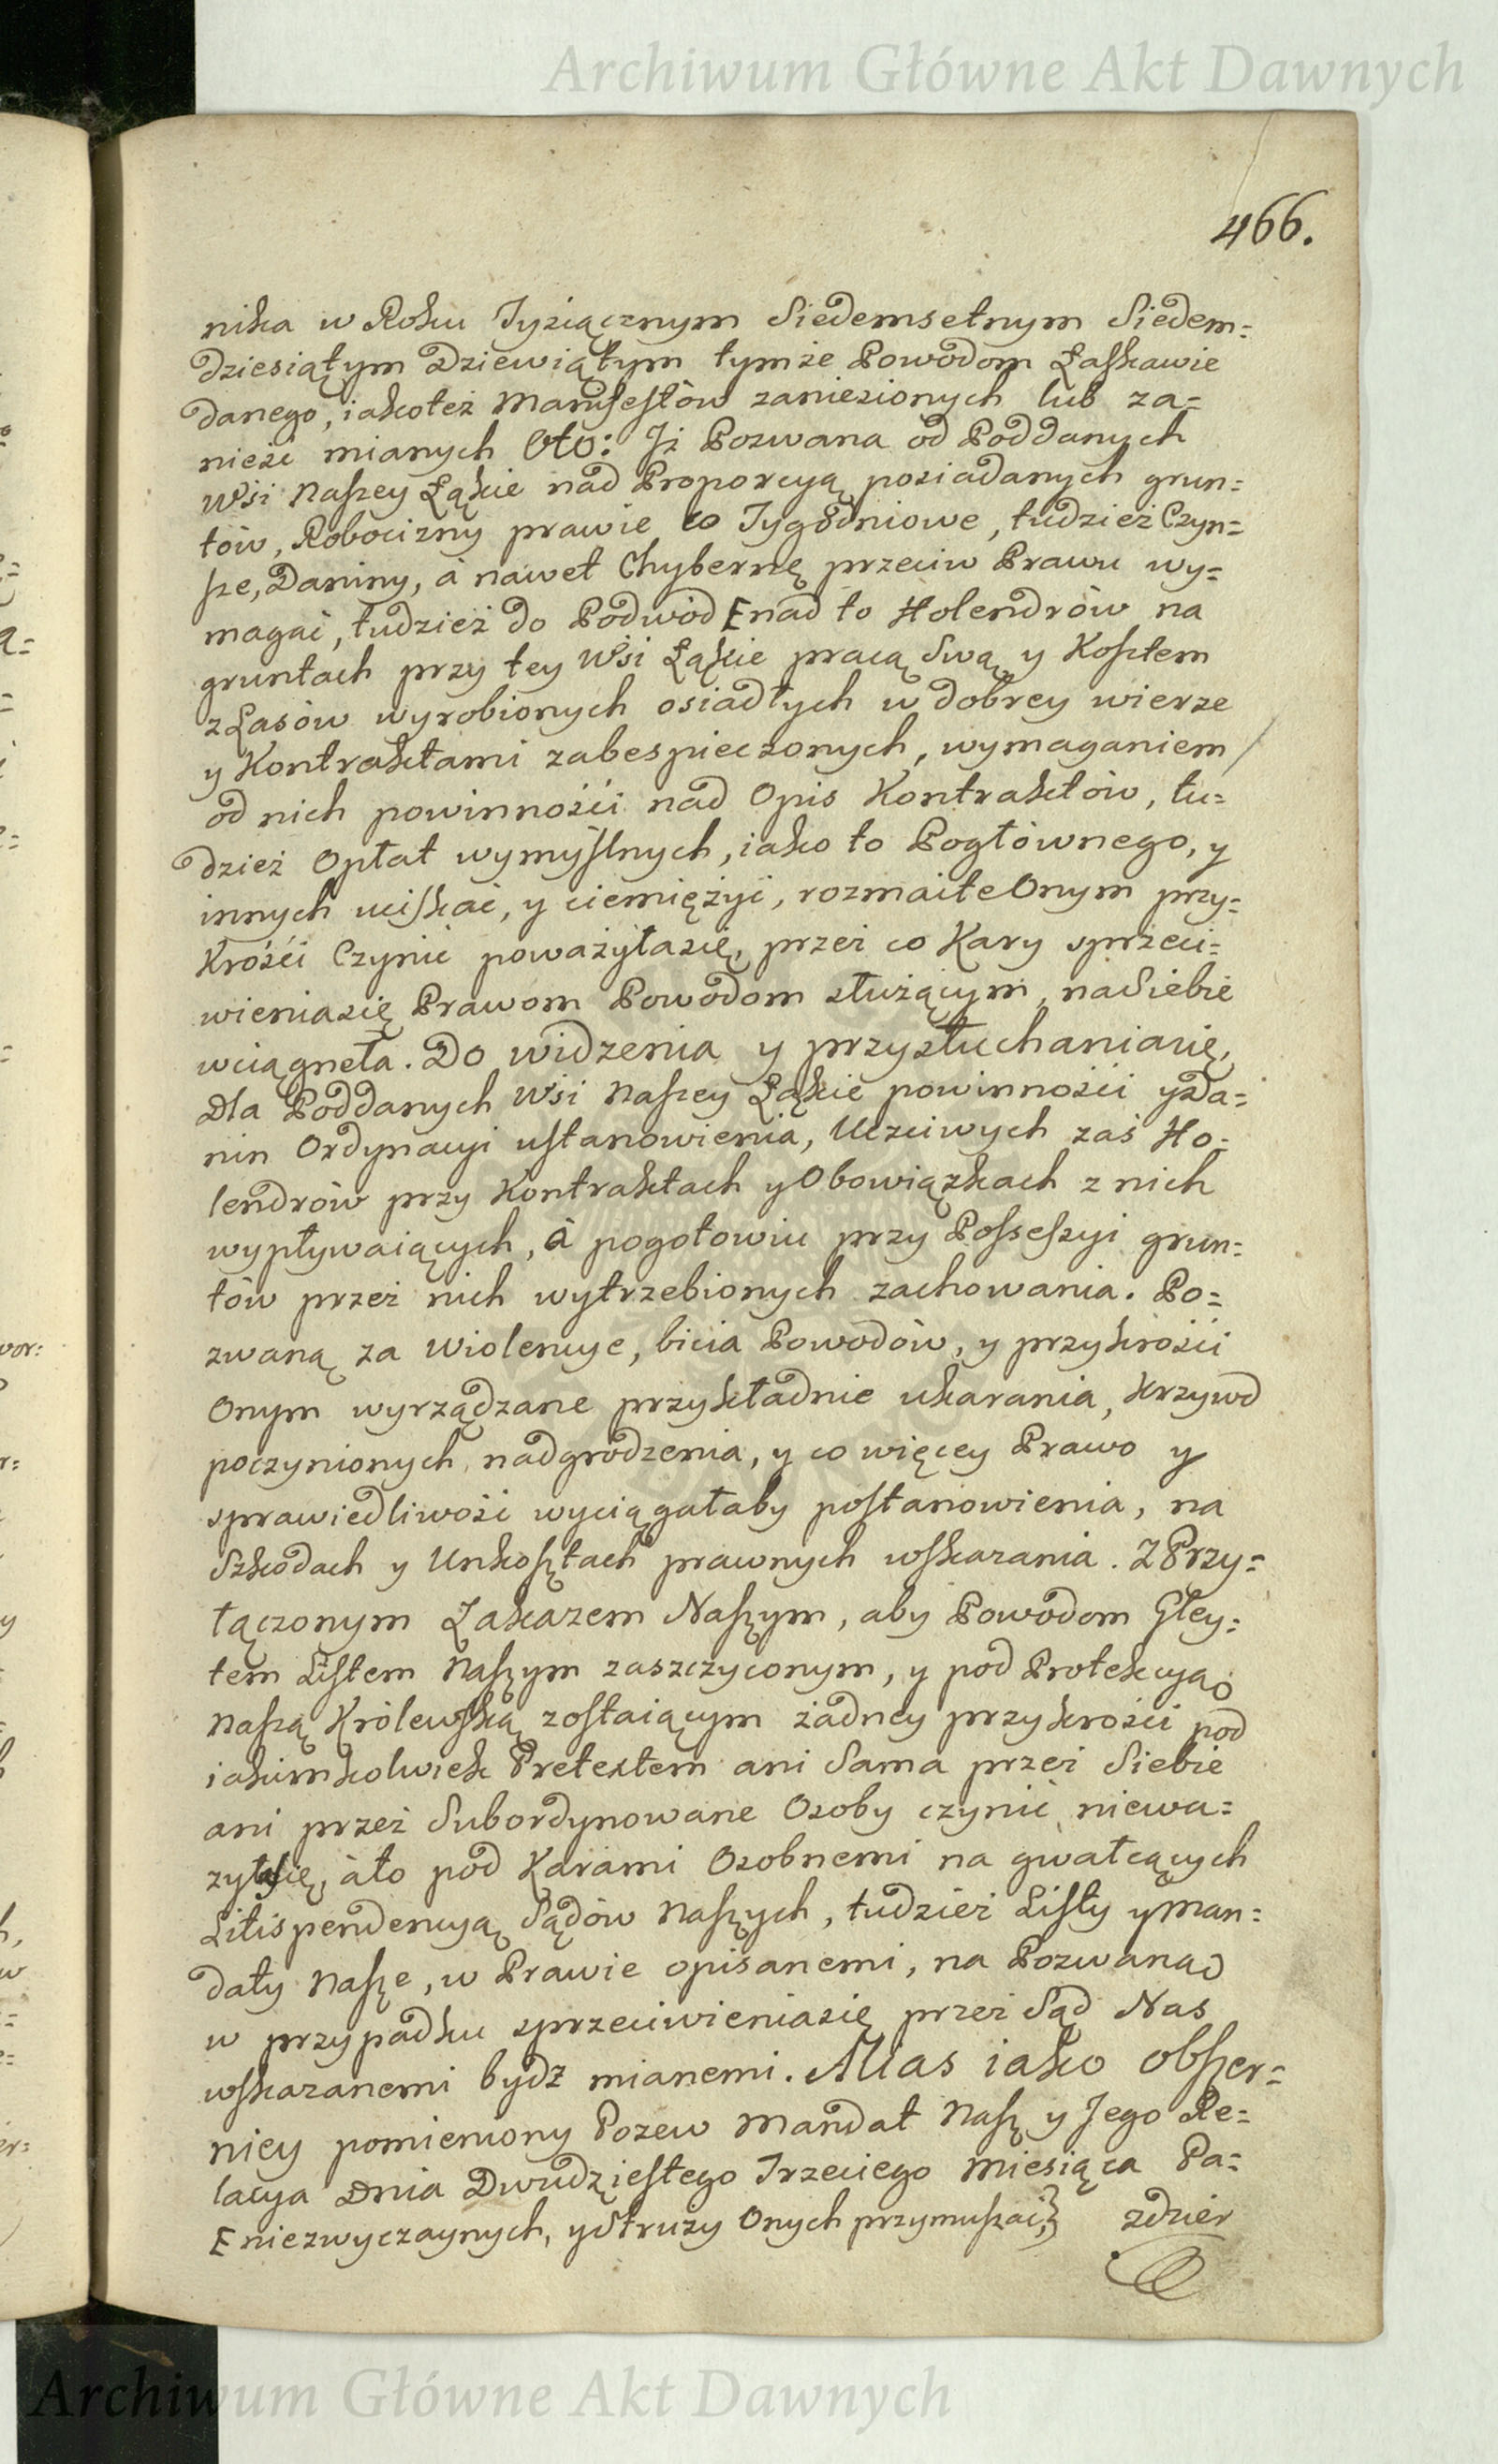 Archiwum Główne Akt Dawnych
466.
nika w Roku Tysiącznym Siedemsetnym Siedem=
dziesiątym Dziewiątym tymże Powodom Łaskawie
danego, iakoteż Manifestów zaniesionych lub za=
nieść mianych Oto: Iż Pozwana od Poddanych
Wsi Naszey Łąkie nad Proporcyą posiadanych grun=
tów, Robocizny prawie co Tygodniowe, tudzież Czyn=
sze, Daniny, à nawet Chybernę przeciw Prawu wy=
magać, tudzież do Podwód [nad to Holendrów na
gruntach przy tey Wsi Łąkie pracą Swą y Kosztem
z Lasów wyrobionych osiadłych w dobrey wierze
y Kontraktami zabespieczonych, wymaganiem /
od nich powinności nad Opis Kontraktów, tu=
dzież Opłat wymyślnych, iako to Pogłównego, y
innych uciskać, y ciemiężyć, rozmaite Onym przy=
krości Czynić poważyłasię, przez co Kary sprzeci=
wieniasię Prawom Powodom służącym, na Siebie
wciągneła. Do widzenia y przysłuchaniasię,
Dla Poddanych Wsi Naszey Łąkie powinności y Da=
nin Ordynacyi ustanowienia, Uczciwych zaś Ho=
lendrów przy Kontraktach y Obowiązkach z nich
wypływaiących, à pogotowiu przy Possessyi grun=
tów przez nich wytrzebionych zachowania. Po=
zwaną za Wiolencye, bicia Powodów, y przykrości
Onym wyrządzane przykładnie ukarania, Krzywd
poczynionych nadgrodzenia, y co więcey Prawo y
sprawiedliwość wyciągałaby postanowienia, na
Szkodach y Unkosztach prawnych wskazania. Z Przy=
łączonym Zakazem Naszym, aby Powodom Gley=
tem Listem Naszym zaszczyconym, y pod Protekcyą
Naszą Królewską zostaiącym żadney przykrości pod
iakimkolwiek Pretextem ani Sama przez Siebie
ani przez Subordynowane Osoby czynić niewa=
żyłasię, àto pod Karami Osobnemi na gwałcących
Litispendencyą Sądów Naszych, tudzież Listy y Man=
daty Nasze, w Prawie opisanemi, na Pozwaną
w przypadku sprzeciwieniasię przez Sąd Nas
wskazanemi bydź mianemi. Alias iako obszer=
niey pomieniony Pozew Mandat Nasz y Jego Re=
lacya Dnia Dwudziestego Trzeciego Miesiąca Pa=
[niezwyczaynych, y Struży Onych przymuszać,} zdzier
Archiwum Główne Akt Dawnych